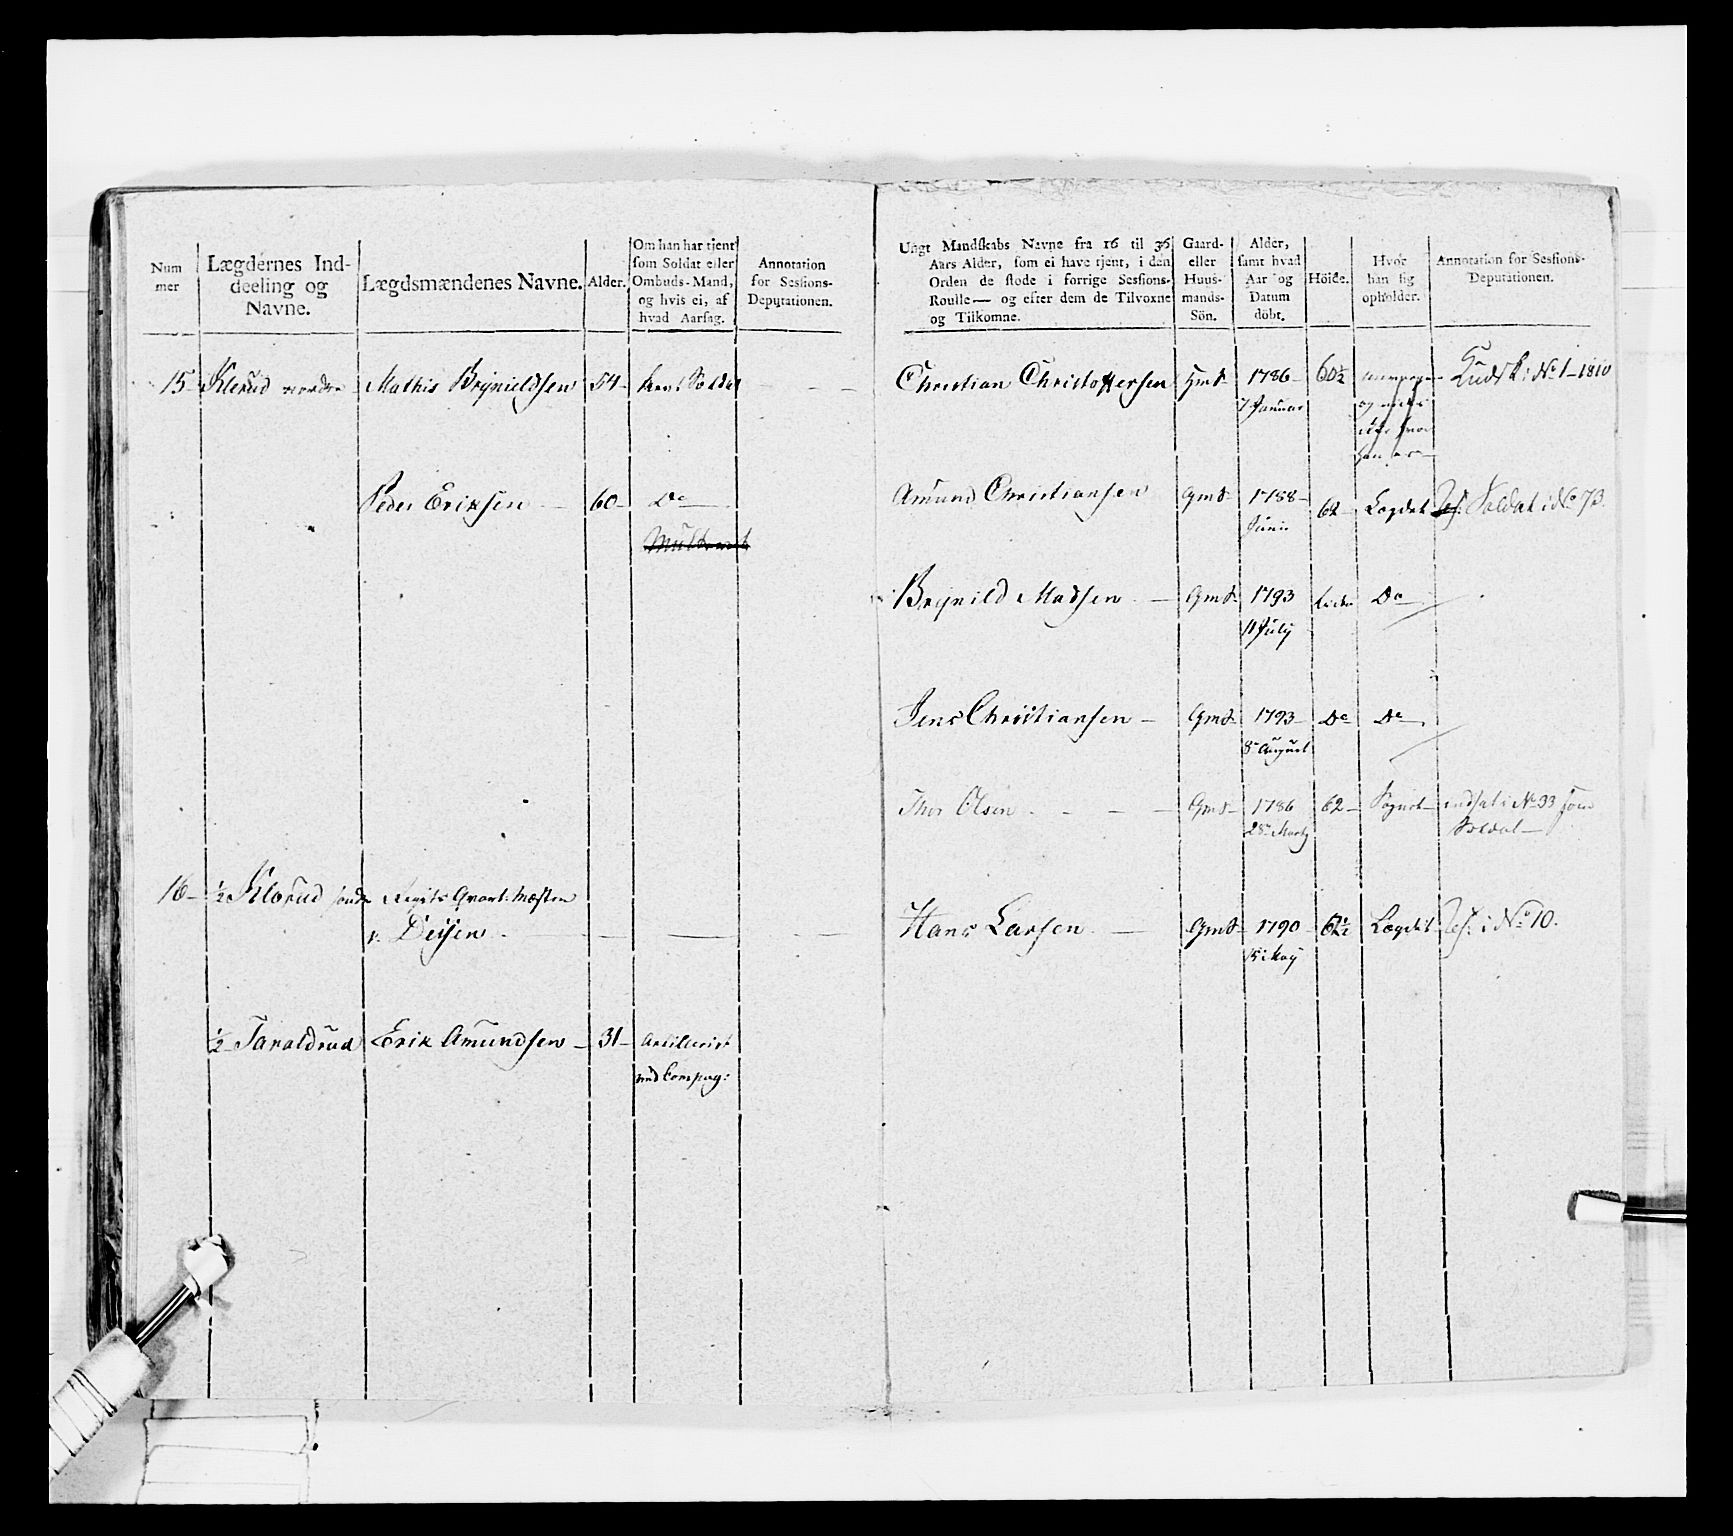 Num
mer
Lægdernes Ind-
deeling og
Navne.
Lægdsmændenes Navne.
Alder.
Om han har tjent
som Soldat eller
Ombuds-Mand,
og hvis ei, af
hvad Aarsag.
Annotation
for Sessions-
Deputationen.
15 Klerud nordre Mathis Brynieldsen 54 Soldat
Peder Eriksen 60 Do
16 ½ Klorud Regits Qvart: Mæster
v. Deisen
½ Taraldrud Erik Amundsen 31 Artillerist
ved Compag:
Ungt Mandskabs Navne fra 16 til 36
Aars Alder, som ei have tjent, i den
Orden de stode i forrige Sessions-
Roulle — og efter dem de Tilvoxne
og Tilkomne.
Gaard-
eller
Huus-
mands-
Sön.
Alder,
samt hvad
Aar og
Datum
döbt.
Höide.
Hvor
han sig
opholder.
Annotation for Sessions-
Deputationen.
Christian Christoffersen HmS 1786 60½ Kudsk i No 1 - 1810
7 Januar
Amund Christiansen GmS 1788 62 Lægdet Soldat i No 73.
Junii
Brynild Madsen GmS 1793 Liden Do
11 July
Jens Christiansen GmS 1793 Do Do
8 August
Thor Olsen GmS 1786 62 Sognet indsat i No 33 som
28 Martz Soldat
Hans Larsen GmS 1790 Lægdet i No 10.
15 May